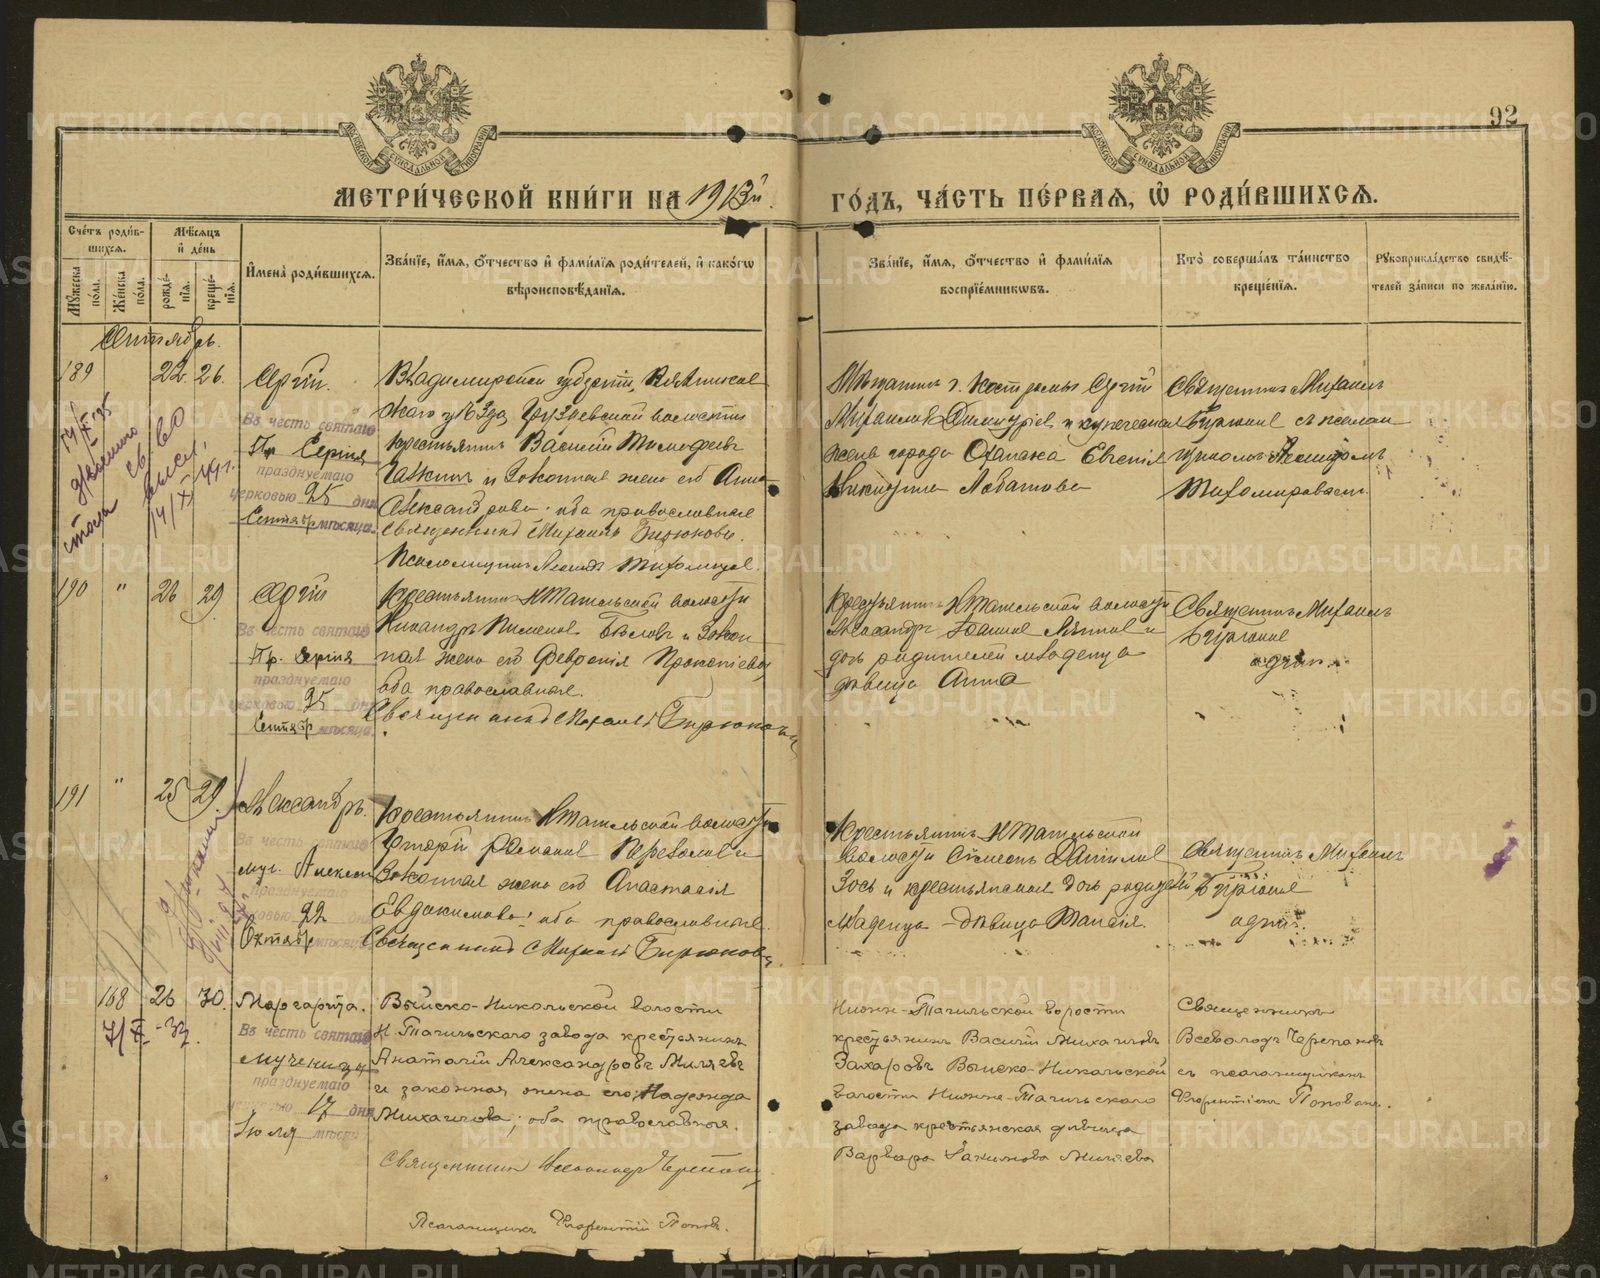 92
МЕТРИ́ЧЕСКОЙ КНИ́ГИ НА 1913й ГО́ДЪ, ЧА́СТЬ ПЕ́РВАЯ, Ѿ РОДИ́ВШИХСѦ.
Сче́тъ роди́вшихсѧ.
Мѣ́сѧцъ и҆ де́нь
Мꙋ́жеска по́ла.
Же́нска по́ла.
рожде́нїѧ.
креще́нїѧ.
И҆мена̀ роди́вшихсѧ.
Зва́нїе, и҆́мѧ, ѻ҆́тчество и҆ фами́лїѧ роди́телей, и҆ како́гѡ вѣроисповѣ́данїѧ.
Зва́нїе, и҆́мѧ, ѻ҆́тчество и҆ фами́лїѧ воспрїе́мникѡвъ.
Кто̀ соверша́лъ та́инство креще́нїѧ.
Рꙋкоприкла́дство свидѣ́телей за́писи по жела́нїю.
Сентябрь.
189
22
26.
Сергій.
Въ честь святаго
Пр. Сергія
празднуемаго
церковью 25 дня
Сентябр мѣсяца.
Владимирской губерніи, Вязников
скаго уѣзда, волости
крестьянинъ Василій Тимофеевъ
и законная жена его Анна
Александрова; оба православные
Священникъ Михаилъ Бирюковъ.
Псаломщикъ Леонидъ Тихомировъ.
Мѣщанинъ г. Костромы Сергій
Михаиловъ и купеческая
жена города Евгенія
Никитина Лобатова
Священникъ Михаилъ
Бирюковъ съ псалом
щикомъ Леонидомъ
Тихомировымъ.
190
"
26
29
Сергій
Въ честь святаго
Пр. Сергія
празднуемаго
церковью 25 дня
Сентябр мѣсяца.
Крестьянинъ Н Тагильской волости
Никандръ Пименовъ Бѣловъ и закон
ная жена его Февронія Прокопіева
оба православные.
Священникъ Михаилъ Бирюковъ
Крестьянинъ Н Тагильской волости
Александръ Іоанновъ и
дочь родителей младенца
дѣвица Анна
Священникъ Михаилъ
Бирюковъ
одинъ.
191
"
25
29.
Александръ.
Въ честь святаго
муч. Александ
празднуемаго
церковью 22 дня
Октябр мѣсяца.
Крестьянинъ Н Тагильской волости
Романовъ и
законная жена его Анастасія
Евдокимова; оба православные.
Священникъ Михаилъ Бирюковъ
Крестьянинъ Н Тагильской
волости Симеонъ Даніиловъ
и крестьянская дочь родителей
младенца - дѣвица Таисія.
Священникъ Михаилъ
Бирюковъ
одинъ.
168
26
30.
Маргарита.
Въ честь святаго
мученицы
празднуемаго
церковью 17 дня
Іюля мѣсяца
Выйско-Никольской волости
Н Тагильскаго завода крестьянинъ
Анатолій Александровъ Миляевъ
и законная жена его Надежда
Михайлова; оба православные.
Священникъ Всеволодъ Черпановъ
Псаломщикъ Флорентій Поповъ.
Нижне-Тагильской волости
крестьянинъ Василій Михайловъ
Захаровъ Выйско-Никольской
волости Нижне-Тагильскаго
завода крестьянская дѣвица
Варвара Миляева
Священникъ
Всеволодъ Черпановъ
съ псаломщикомъ
Флорентіемъ Поповымъ.
METRIKI.GASO-URAL.RU